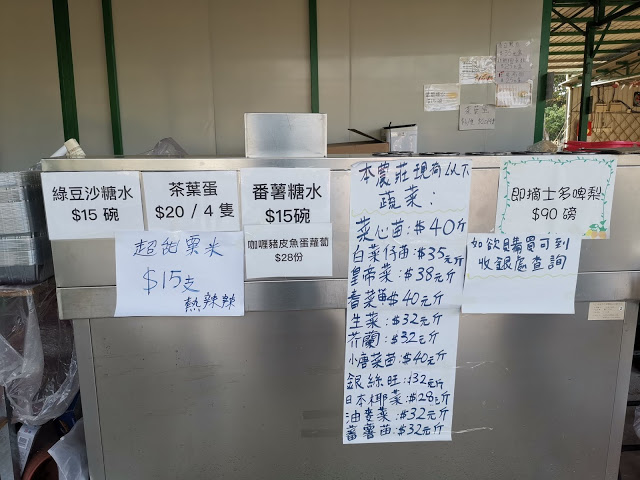 綠豆沙糖水
$15 碗
茶葉蛋
$20 / 4 隻
番薯糖水
$15碗
咖喱豬皮魚蛋蘿蔔
$28份
超甜粟米
$15支
熱辣辣
本農莊現有以下
蔬菜：
菜心苗：$40斤
白菜仔苗：$35元斤
皇帝菜：$38元斤
春菜：$40元斤
生菜：$32元斤
芥蘭：$32元斤
小唐菜苗：$40元斤
銀絲旺：$32元斤
日本椰菜：$28元斤
油麥菜：$32元斤
蕃薯苗：$32元斤
即摘士多啤梨
$90 磅
如欲購買可到
收銀處查詢